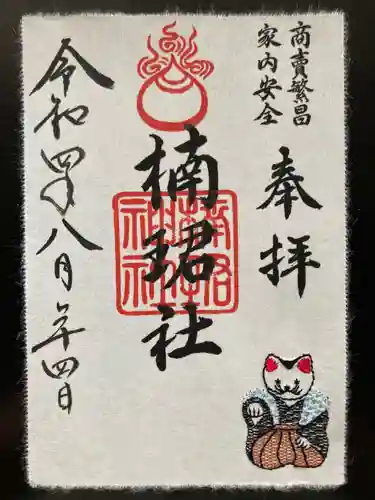 商賣繁昌
家内安全
奉拝
楠珺社
令和四年八月二十四日